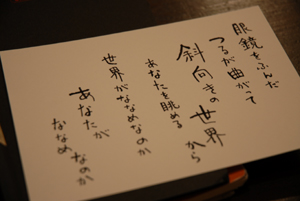 眼鏡をふんだ
つるが曲がって
斜向きの世界から
あなたを眺める
世界がななめなのか
あなたが
ななめなのか